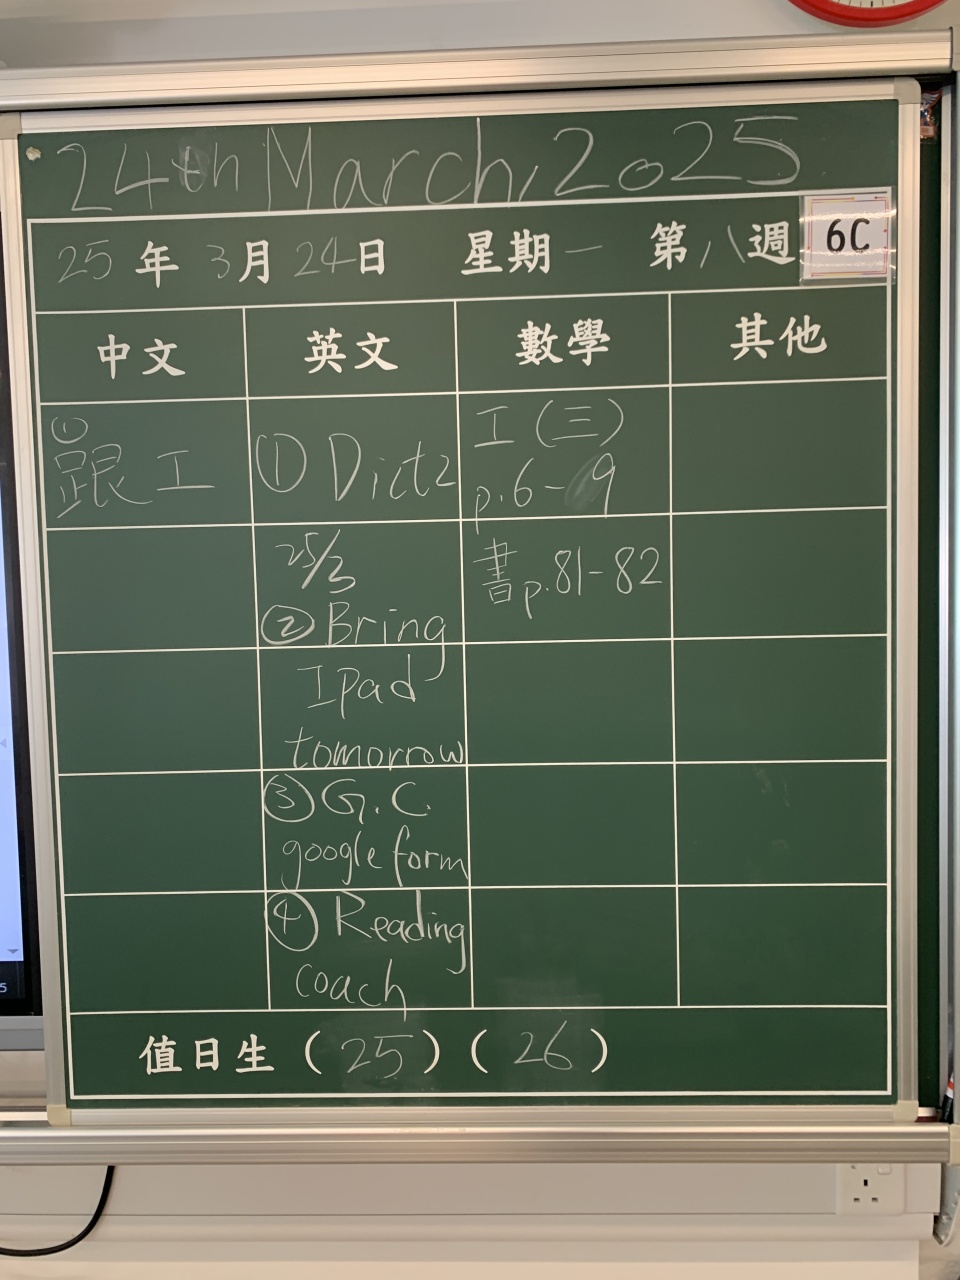 24th March, 2025
25年 3月 24日 星期一 第八週
6C
中文 英文 數學 其他
①
跟工
① Dict2
25/3
② Bring
Ipad
tomorrow
③ G.C.
google form
④ Reading
coach
工(三)
p.6-9
書p.81-82
值日生(25)(26)
5